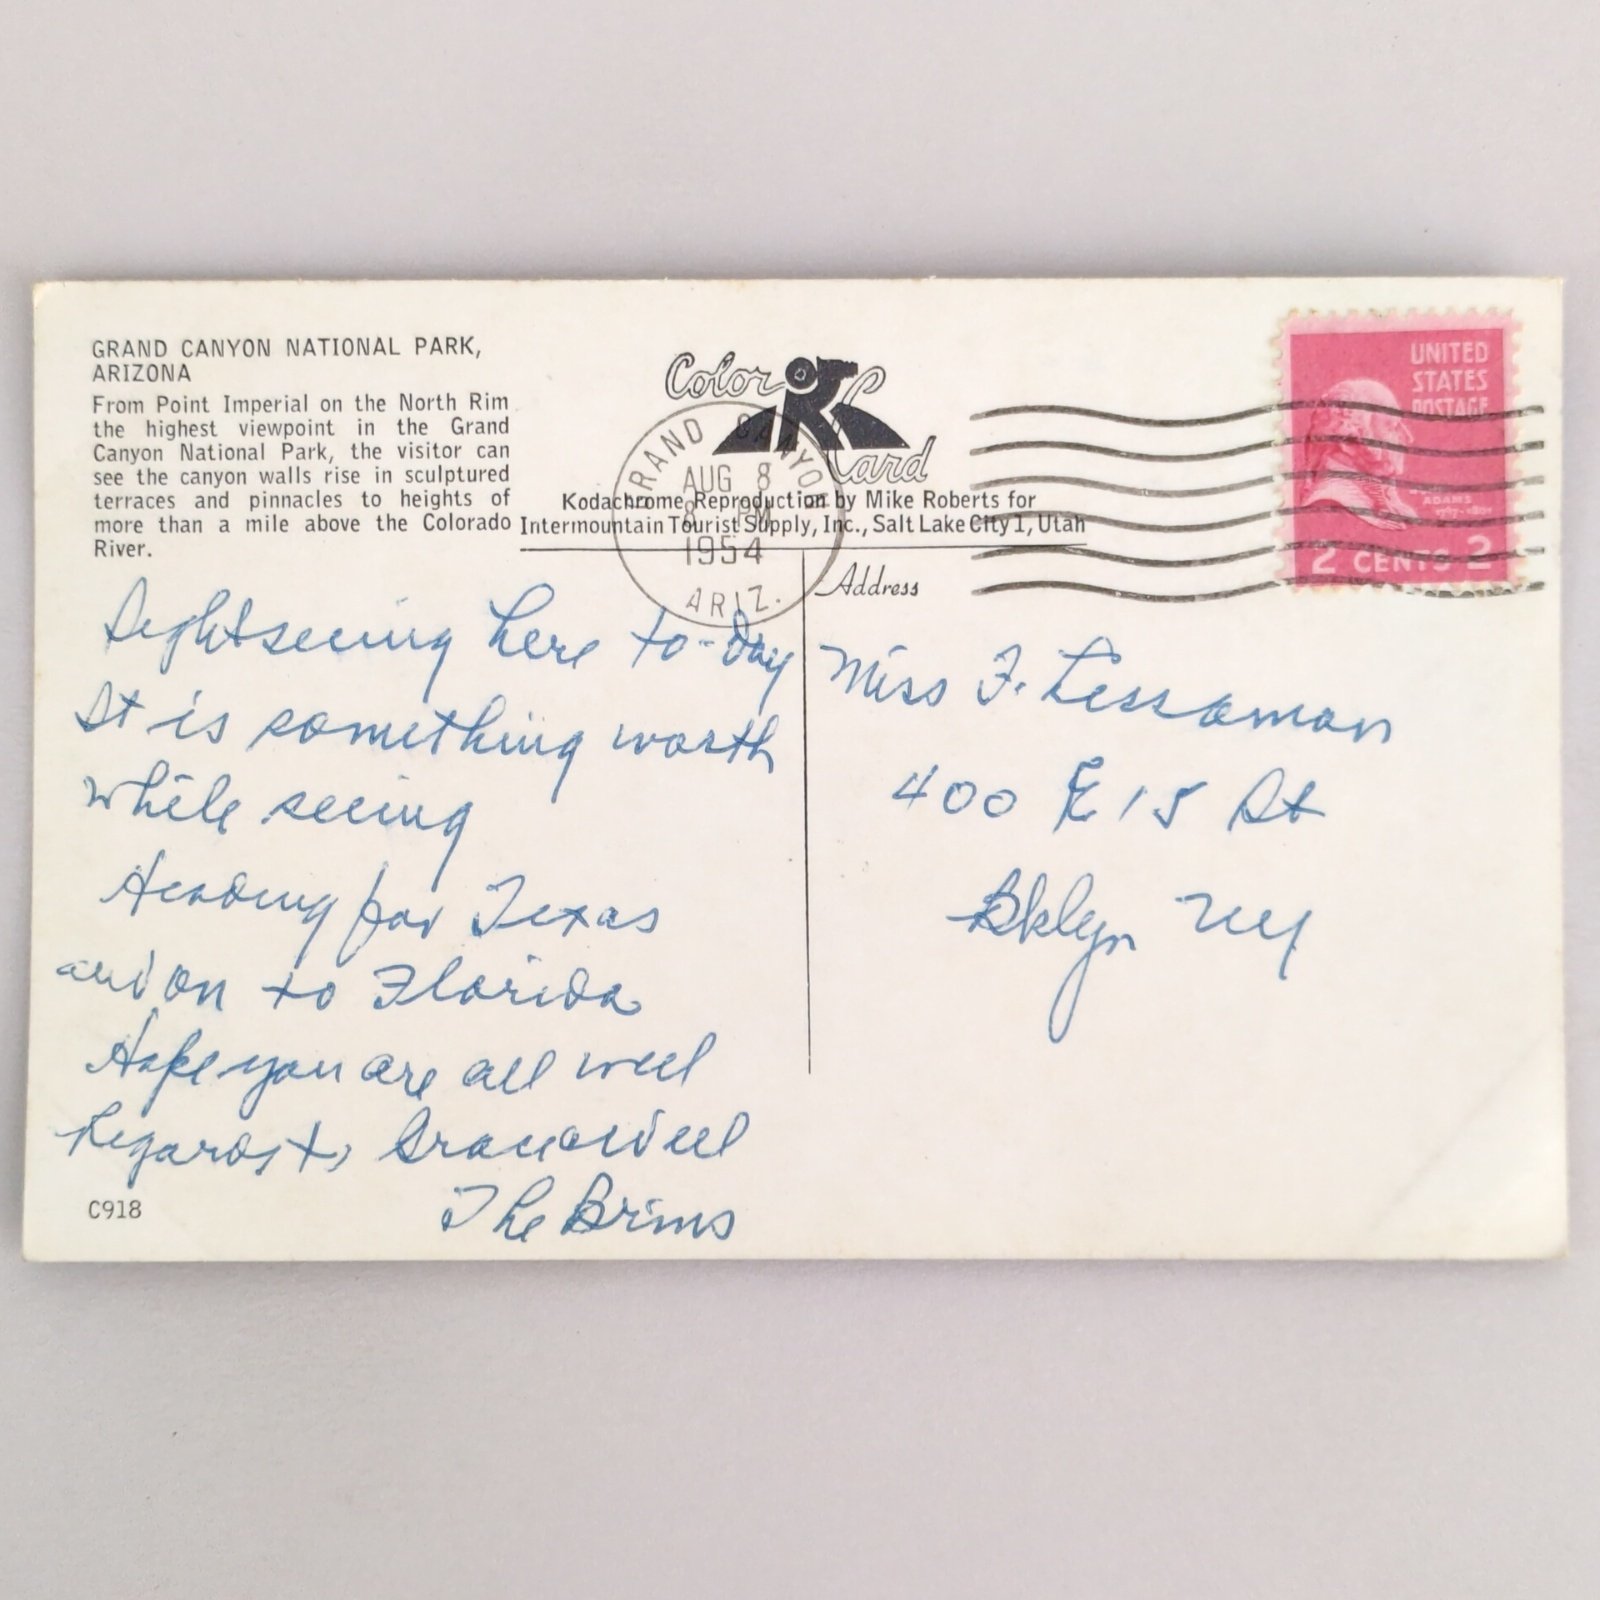 GRAND CANYON NATIONAL PARK,
ARIZONA
From Point Imperial on the North Rim
the highest viewpoint in the Grand
Canyon National Park, the visitor can
see the canyon walls rise in sculptured
terraces and pinnacles to heights of
more than a mile above the Colorado
River.
Color Card
Kodachrome Reproduction by Mike Roberts for
Intermountain Tourist Supply, Inc., Salt Lake City 1, Utah
GRAND CANYON
AUG 8
8 PM
1954
ARIZ.
UNITED
STATES
POSTAGE
ADAMS
1797-1801
2 CENTS 2
Address
Sightseeing here to-day
It is something worth
while seeing
Heading for Texas
and on to Florida
Hope you are all well
Regards to
The Brims
Miss F. Lessaman
400 E 15 St
Bklyn NY
C918